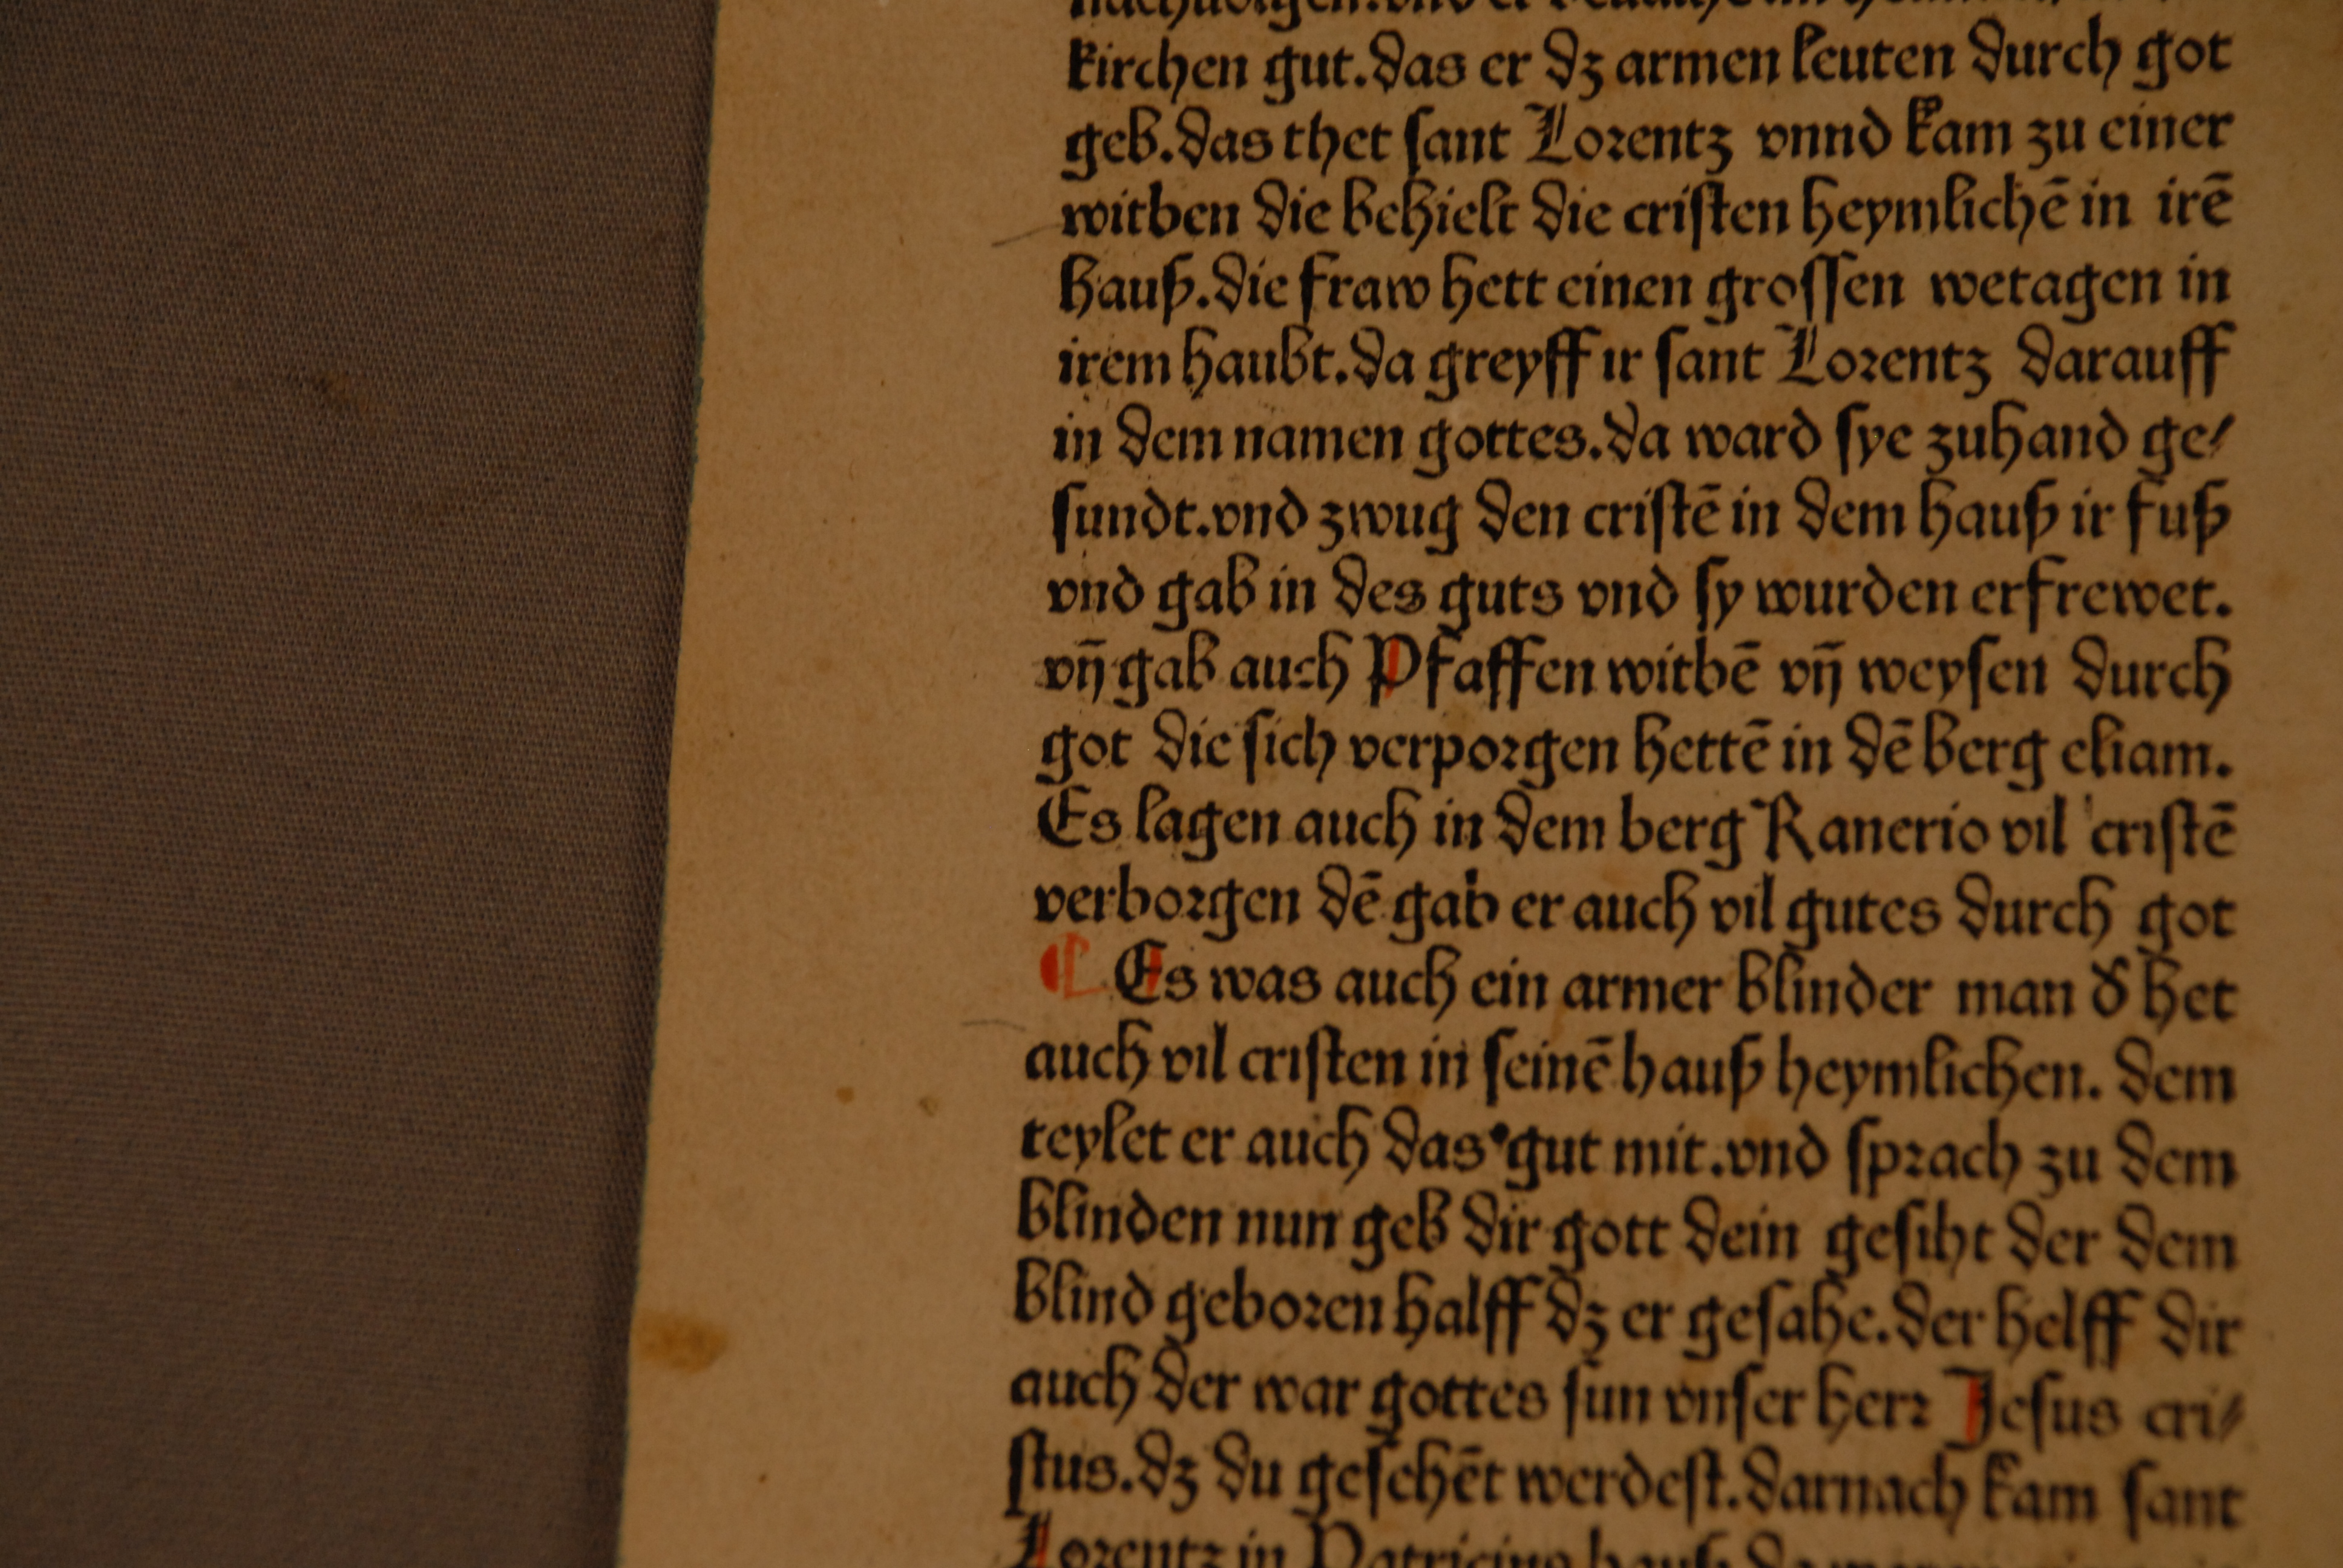 kirchen gut.das er dʒ armen leuten durch got
geb.das thet ſant Lorentz vnnd kam zu einer
witben die behielt die criſten heymlichē in irē
hauß.die fraw hett einen groſſen wetagen in
irem haubt.da greyff ir ſant Lorentz darauff
in dem namen gottes.da ward ſye zuhand ge/
ſundt.vnd zwug den criſtē in dem hauß ir fuß
vnd gab in des guts vnd ſy wurden erfrewet.
vn̄ gab auch Pfaffen witbē vn̄ weyſen durch
got die ſich verporgen hettē in dē berg eliam.
Es lagen auch in dem berg Ranerio vil criſtē
verborgen dē gab er auch vil gutes durch got
¶ Es was auch ein armer blinder man d' het
auch vil criſten in ſeinē hauß heymlichen. dem
teylet er auch das gut mit.vnd ſprach zu dem
blinden nun geb dir gott dein geſiht der dem
blind geboren halff dʒ er geſahe.der helff dir
auch der war gottes ſun vnſer herr Jeſus cri/
ſtus.dʒ du geſehēt werdeſt.darnach kam ſant
Lorentz in Patricius hauß